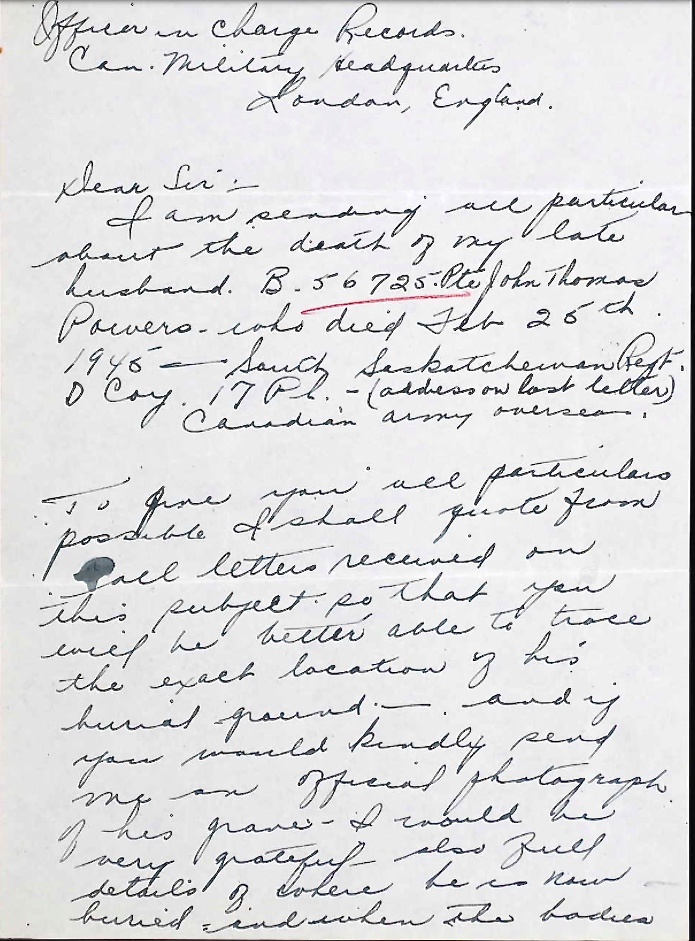 Officer in Charge Records.
Can. Military Headquarters
London, England.
Dear Sir:-
I am sending all particular
about the death of my late
husband. B-56725. Pte John Thomas
Powers - who died Feb 25th
1945 — South Saskatchewan Regt.
D Coy. 17 Pl. - (address on last letter)
Canadian army overseas.
To give you all particulars
possible I shall quote from
all letters received on
this subject. so that you
will be better able to trace
the exact location of his
burial ground. — . and if
you would kindly send
me an official photograph
of his grave - I would be
very grateful - also full
details of where he is now -
buried - and when the bodies